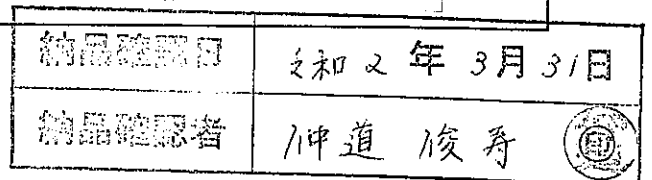 納品確認日 令和2年3月31日
納品確認者 仲道 俊寿 印